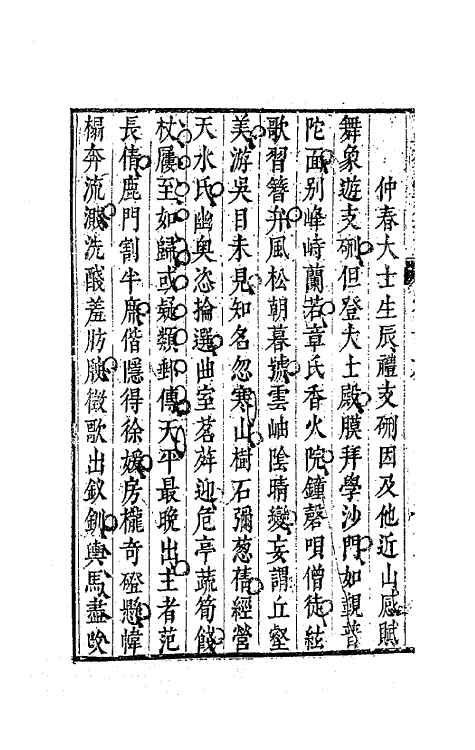 仲春大士生辰禮支硎因及他近山感賦
舞象遊支硎但登大士殿膜拜學沙門如覩普
陀面别峰峙蘭若章氏香火院鐘磬唄僧徒絃
歌習簪弁風松朝暮號雲岫陰晴變妄謂丘壑
美游吳目未見知名忽寒山樹石彌葱蒨經營
天水氏幽奥恣掄選曲室茗薢迎危亭蔬筍餞
杖屨至如歸或疑類郵傳天平最晚出主者范
長倩鹿門割半廡偕隱得徐媛房櫳奇磴懸幃
榻奔流濺洗酸羞肪膩徵歌出釵釧輿馬盡畋